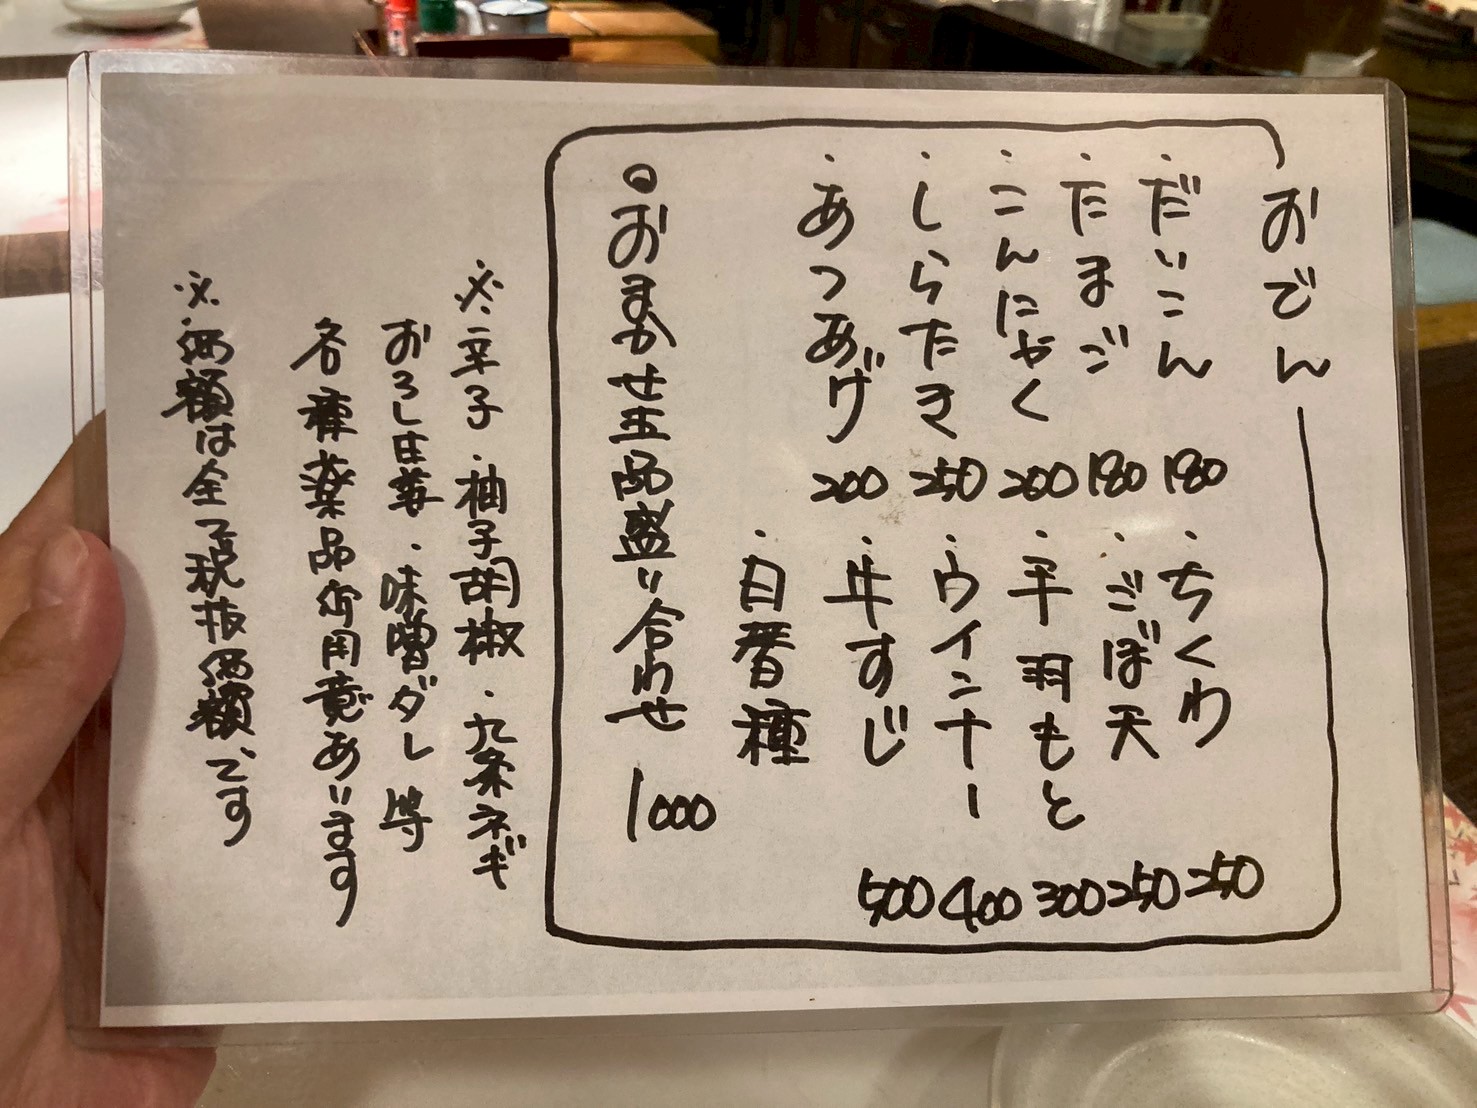 おでん
・だいこん 180
・たまご 180
・こんにゃく 200
・しらたき 250
・あつあげ 200
・ちくわ 250
・ごぼ天 250
・手羽もと 300
・ウインナー 400
・牛すじ 500
・日替種
◎おまかせ五品盛り合わせ 1000
※辛子・柚子胡椒・九条ネギ
おろし生姜・味噌ダレ等
各種薬品御用意あります
※価額は全て税抜価額です